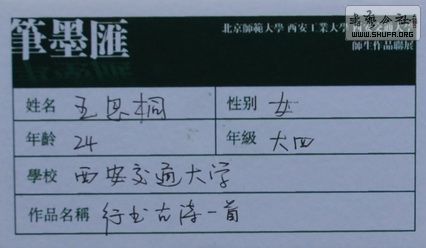 筆墨匯
北京師範大學 西安工業大學
師生作品聯展
書藝公社
WWW.SHUFA.ORG
姓名 王思桐 性别 女
年齡 24 年級 大四
學校 西安交通大学
作品名稱 行书古诗一首